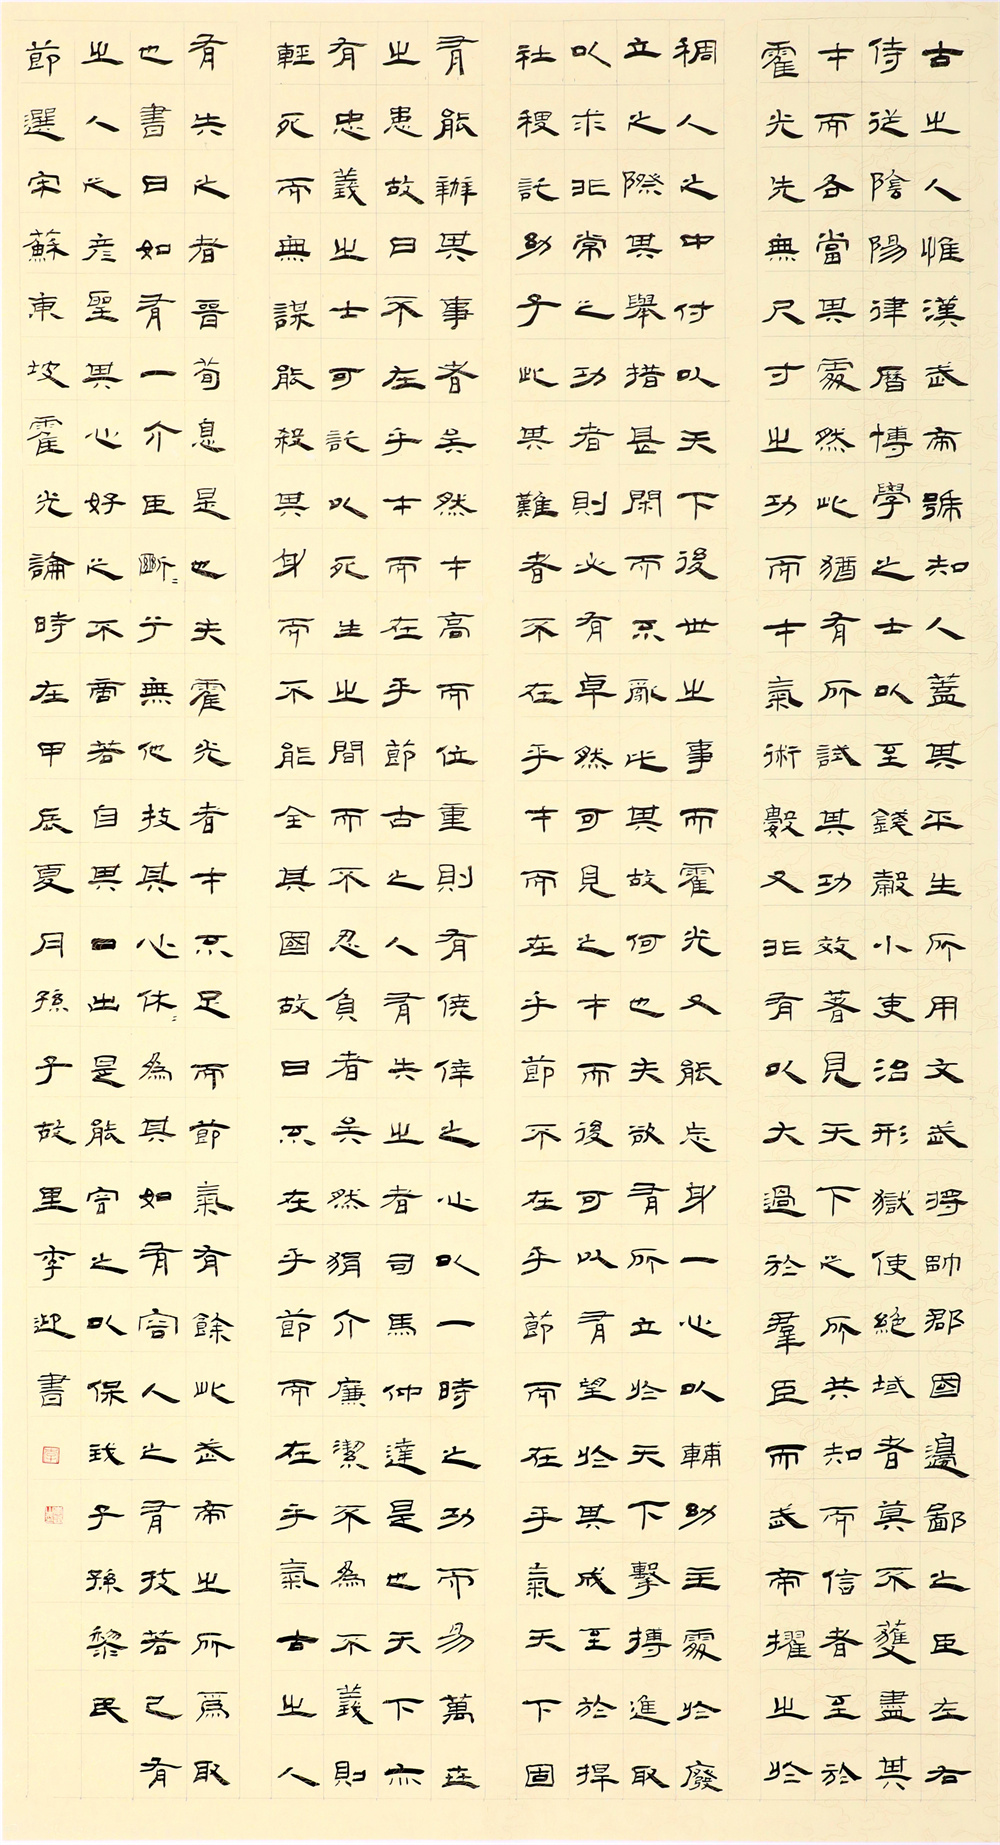 古之人惟漢武帝號知人蓋其平生所用文武將帥郡國邊鄙之臣左右
侍從陰陽律曆博學之士以至錢穀小吏治刑獄使絕域者莫不獲盡其
才而各當其處然此猶有所試其功效著見天下之所共知而信者至於
霍光先無尺寸之功而才氣術數又非有以大過於羣臣而武帝擢之於
稠人之中付以天下後世之事而霍光又能忘身一心以輔幼主處於廢
立之際其舉措甚閑而不亂此其故何也夫欲有所立於天下擊搏進取
以求非常之功者則必有卓然可見之才而後可以有望於其成至於捍
社稷託幼子此其難者不在乎才而在乎節不在乎節而在乎氣天下固
有能辦其事者矣然才高而位重則有僥倖之心以一時之功而易萬世
之患故曰不在乎才而在乎節古之人有失之者司馬仲達是也天下亦
有忠義之士可託以死生之間而不忍負者矣然狷介廉潔不為不義則
輕死而無謀能殺其身而不能全其國故曰不在乎節而在乎氣古之人
有失之者晉荀息是也夫霍光者才不足而節氣有餘此武帝之所為取
也書曰如有一介臣斷〻兮無他技其心休〻為其如有容人之有技若己有
之人之彥聖其心好之不啻若自其口出是能容之以保我子孫黎民
節選宋蘇東坡霍光論時在甲辰夏月孫子故里李迎書